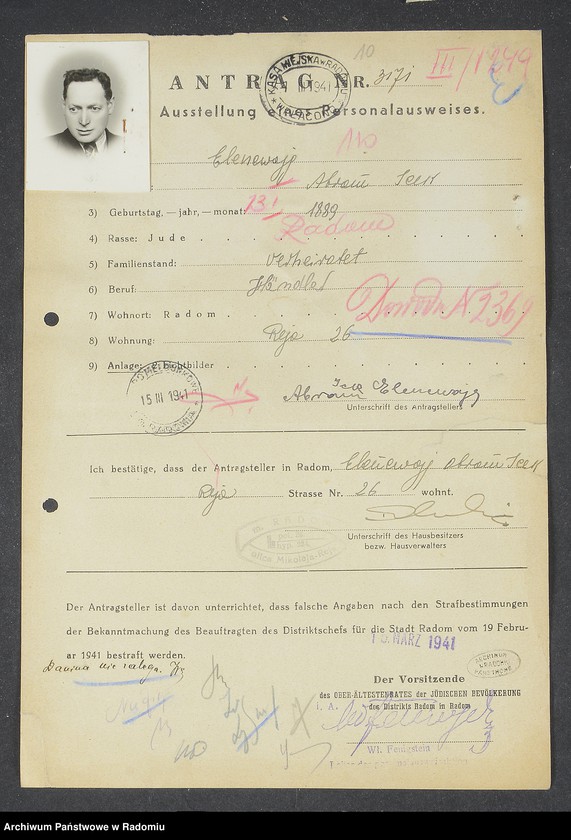 10
ANTRAG NR. 3171
III/1249
KASA MIEJSKA w RADOMIU
III 1941
WPŁACONO
Ausstellung eines Personalausweises.
Elenewajg
Abram Icek
3) Geburtstag, — jahr, — monat: 13.I 1889
Radom
4) Rasse: Jude
5) Familienstand: verheiratet
6) Beruf: Händler
7) Wohnort: Radom
Dowodu N 2369
8) Wohnung: Reja 26
9) Anlage: Lichtbilder
15 III 1941
Abram Icek Elenewajg
Unterschrift des Antragstellers
Ich bestätige, dass der Antragsteller in Radom, Elenewajg Abram Icek
Reja Strasse Nr. 26 wohnt.
Unterschrift des Hausbesitzers
bezw. Hausverwalters
Der Antragsteller ist davon unterrichtet, dass falsche Angaben nach den Strafbestimmungen
der Bekanntmachung des Beauftragten des Distriktschefs für die Stadt Radom vom 19 Febru-
ar 1941 bestraft werden.
MÄRZ 1941
ARCHIWUM
PAŃSTWOWE
Der Vorsitzende
des OBER-ÄLTESTENRATES der JÜDISCHEN BEVÖLKERUNG
des Distrikts Radom in Radom
i. A.
Wł. Fenigstein
Archiwum Państwowe w Radomiu